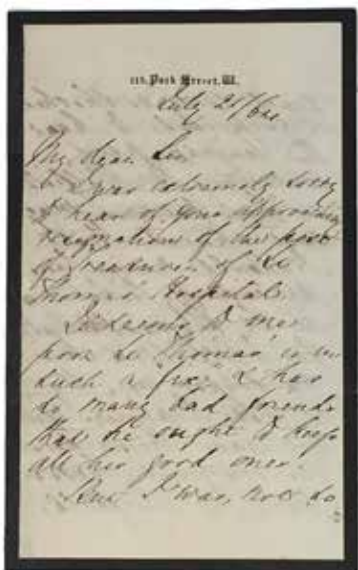 115, Park Street, W.
July 25/64
My dear Sir
I was extremely sorry
to hear of your approaching
resignation of the post
of Treasurer of St
Thomas' Hospital.
It seems to me
poor St Thomas is in
such a "fix" & has
so many bad friends
that he ought to keep
all his good ones.
But I was, not so